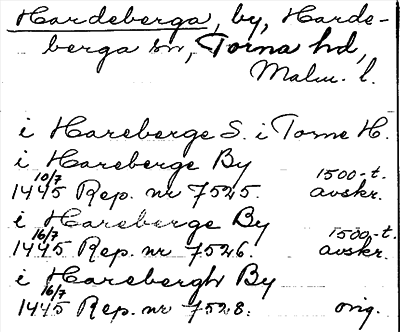 Hardeberga, by, Harde-
berga sn, Torna hd,
Malm. l.
i Hareberge S. i Torne H.
i Hareberge By
10/7 1500-t.
1445 Rep. nr 7525. avskr.
i Hareberge By
16/7 1500-t.
1445 Rep. nr 7526. avskr.
i Harebergh By
16/7
1445 Rep. nr 7528. orig.